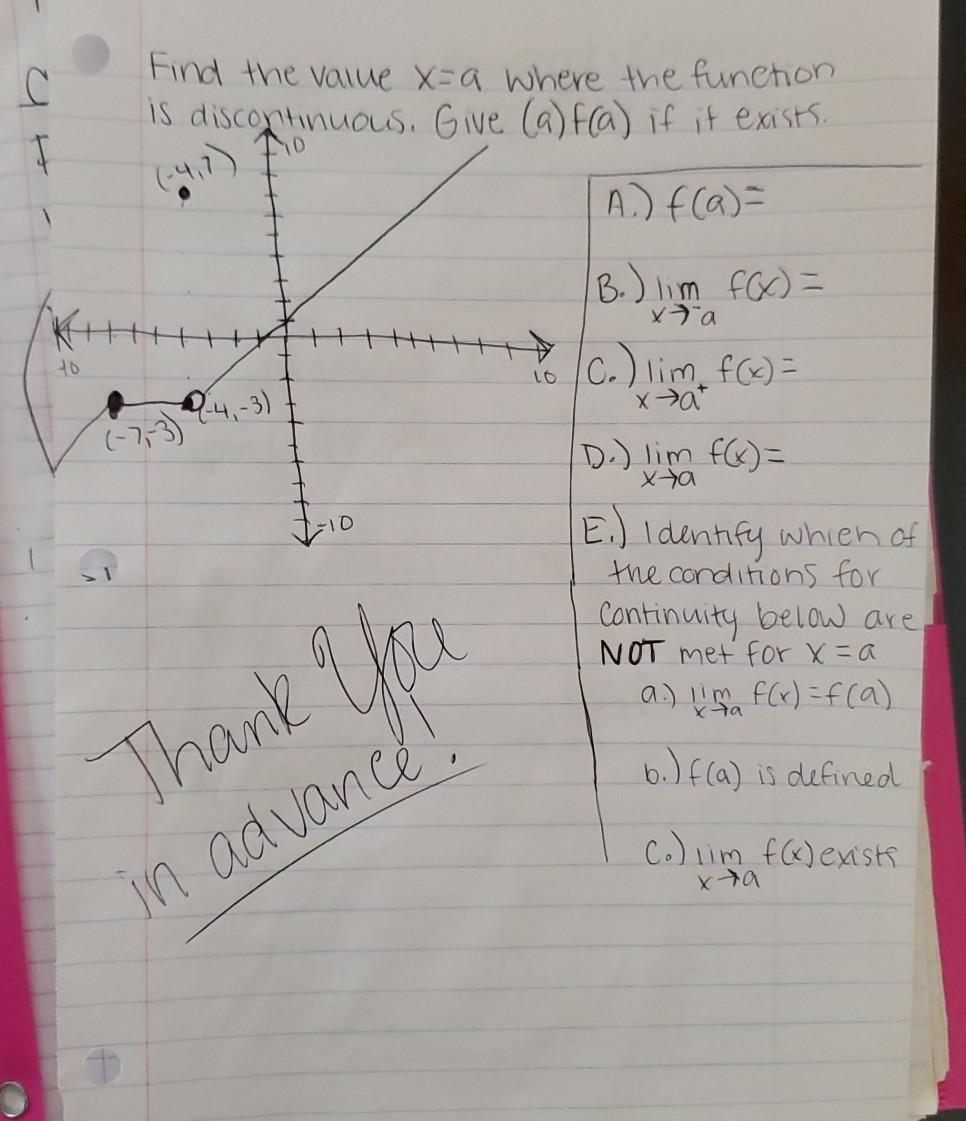 Find the value x=a where the function
is discontinuous. Give (a)f(a) if it exists.
10
(-4,7)
10
10
(-4,-3)
(-7,-3)
-10
A.) f(a)=
B.) lim f(x)=
x→⁻a
C.) lim f(x)=
x→a⁺
D.) lim f(x)=
x→a
E.) Identify which of
the conditions for
continuity below are
NOT met for x=a
a.) lim f(x)=f(a)
x→a
b.) f(a) is defined
C.) lim f(x) exists
x→a
Thank You
in advance.